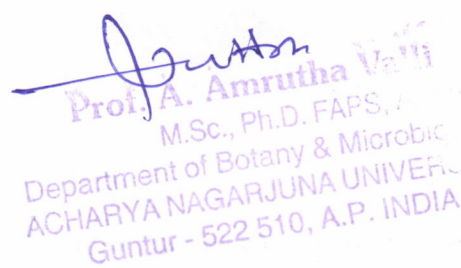 Prof. A. Amrutha Valli
M.Sc., Ph.D. FAPS,
Department of Botany &
ACHARYA NAGARJUNA
Guntur - 522 510, A.P. INDIA